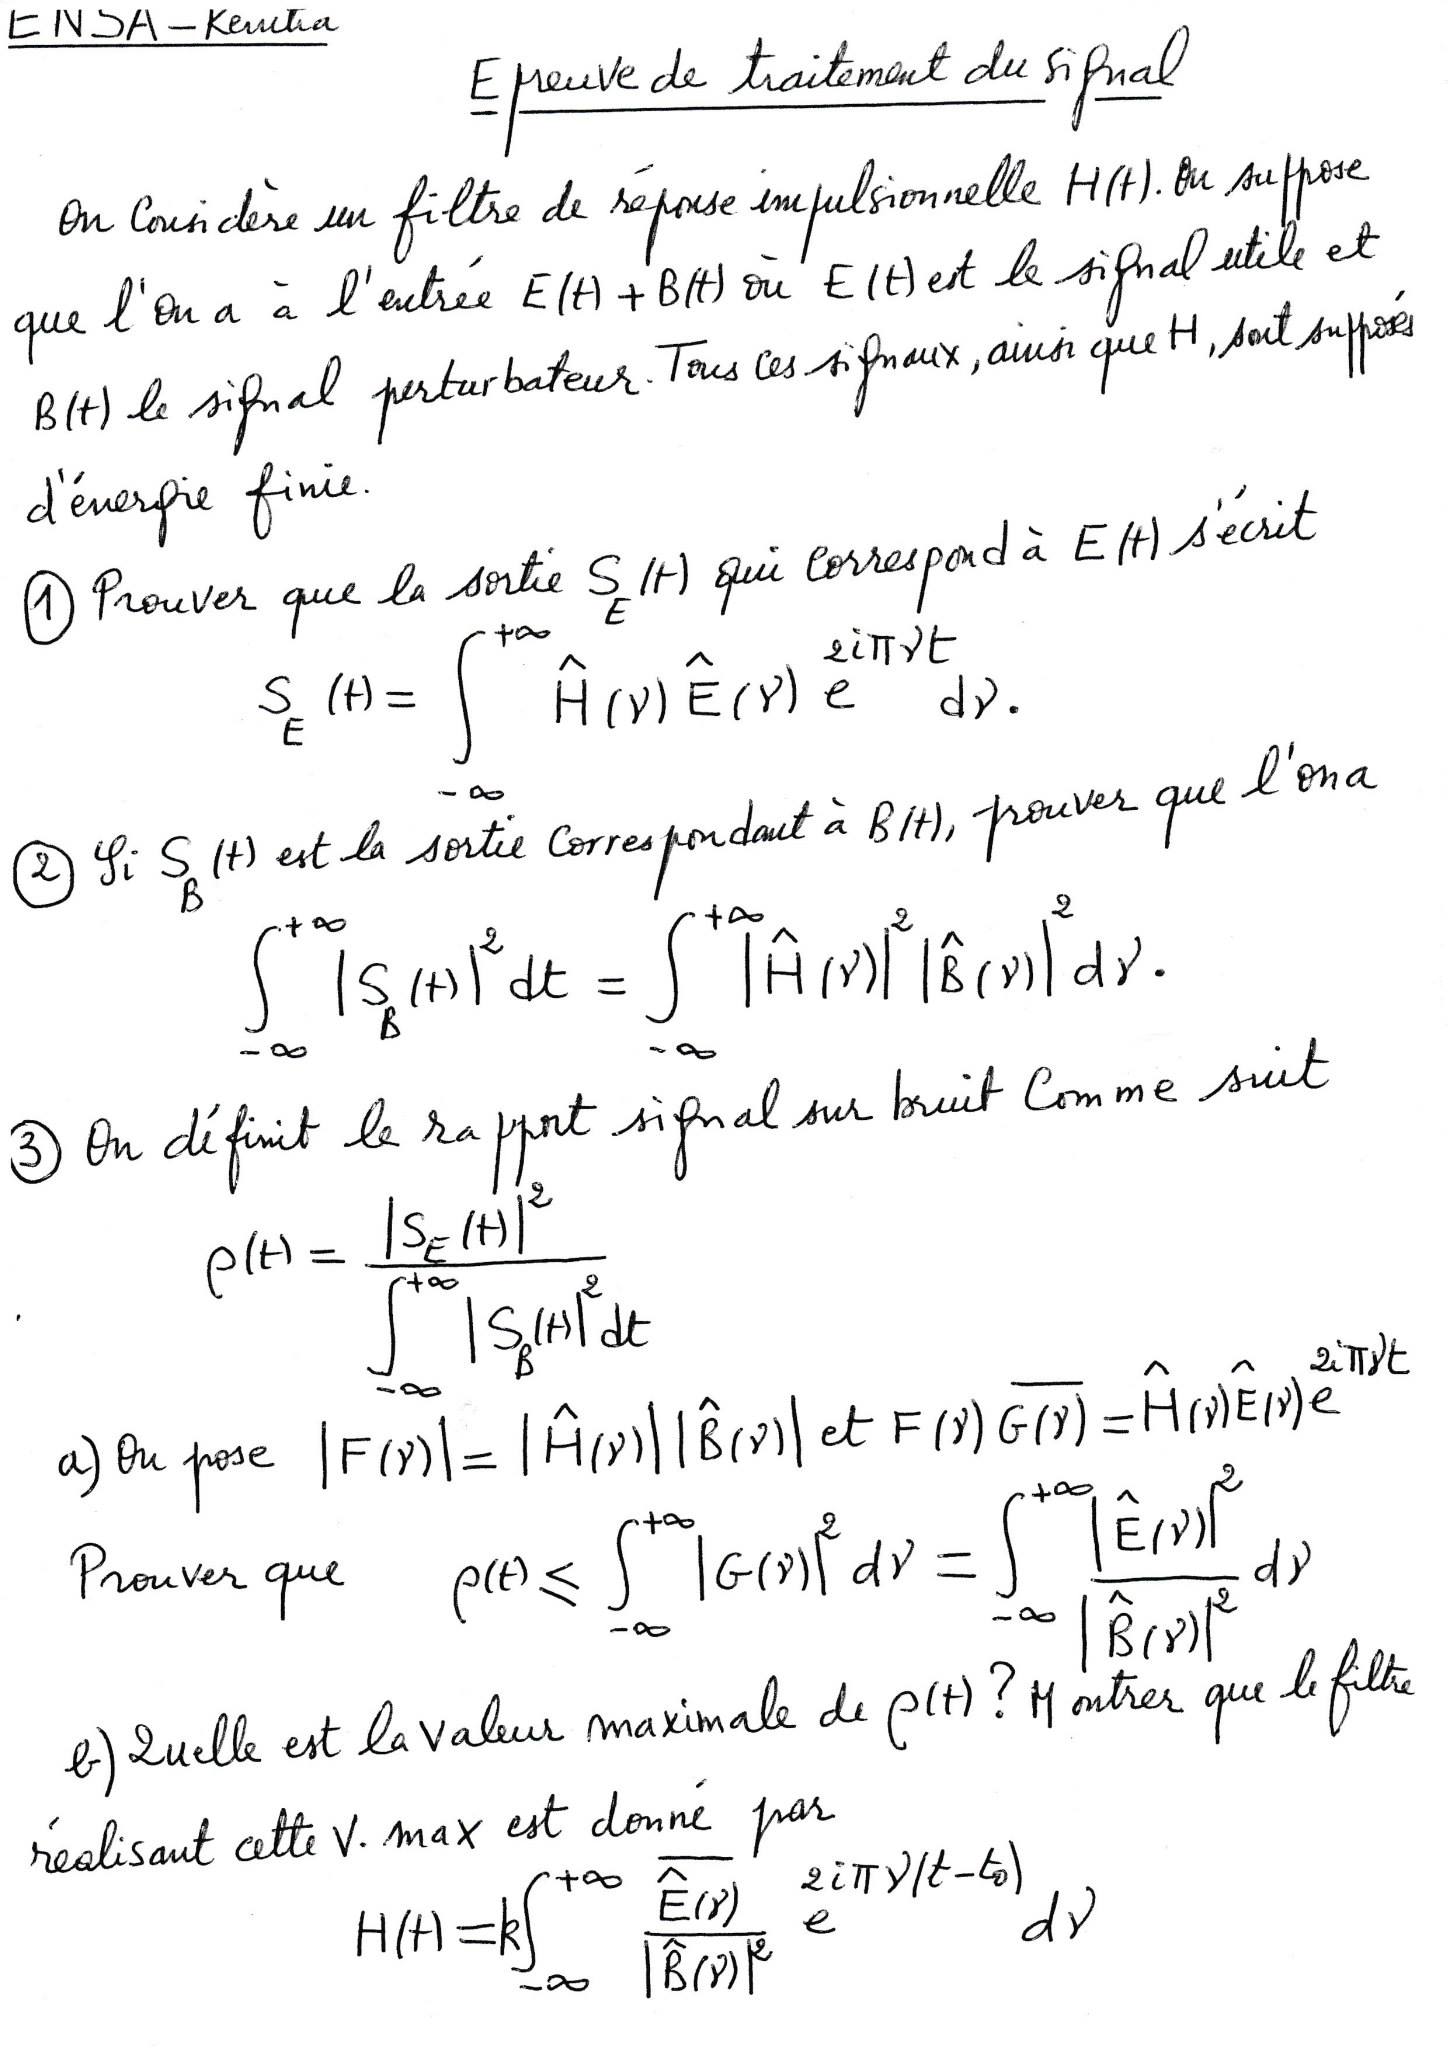 ENSA-Kenitra
Epreuve de traitement du signal
On Considère un filtre de réponse impulsionnelle H(t). On suppose
que l'on a à l'entrée E(t) + B(t) où E(t) est le signal utile et
B(t) le signal perturbateur. Tous ces signaux, ainsi que H, sont supposés
d'énergie finie.
① Prouver que la sortie S_E(t) qui correspond à E(t) s'écrit
S_E(t) = ∫_{-∞}^{+∞} Ĥ(γ) Ê(γ) e^{2iπγt} dγ.
② Si S_B(t) est la sortie correspondant à B(t), prouver que l'on a
∫_{-∞}^{+∞} |S_B(t)|² dt = ∫_{-∞}^{+∞} |Ĥ(γ)|² |B̂(γ)|² dγ.
③ On définit le rapport signal sur bruit Comme suit
ρ(t) = |S_E(t)|² / ∫_{-∞}^{+∞} |S_B(t)|² dt
a) On pose |F(γ)| = |Ĥ(γ)| |B̂(γ)| et F(γ) \overline{G(γ)} = Ĥ(γ) Ê(γ) e^{2iπγt}
Prouver que ρ(t) ⩽ ∫_{-∞}^{+∞} |G(γ)|² dγ = ∫_{-∞}^{+∞} |Ê(γ)|² / |B̂(γ)|² dγ
b) Quelle est la valeur maximale de ρ(t) ? Montrer que le filtre
réalisant cette v. max est donné par
H(t) = k ∫_{-∞}^{+∞} \overline{Ê(γ)} / |B̂(γ)|² e^{2iπγ(t-t₀)} dγ